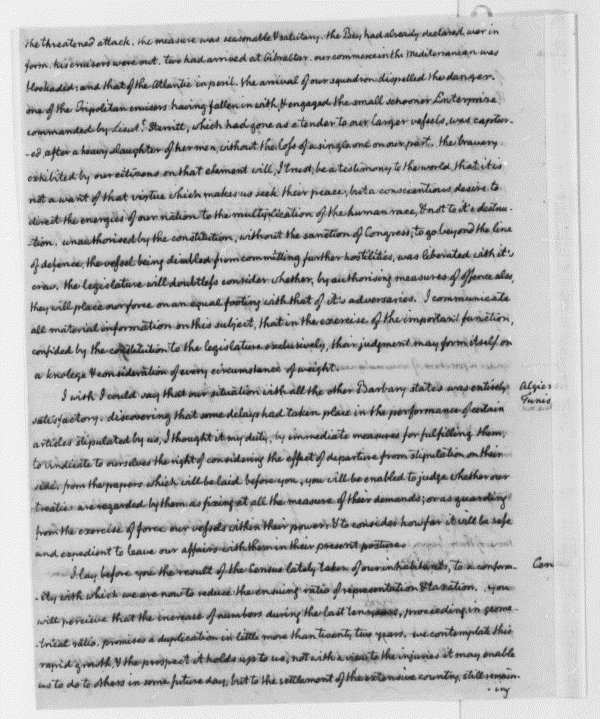 the threatened attack. the measure was reasonable & salutary. the Bey had already declared war in
form. his cruisers were out. two had arrived at Gibraltar. our commerce in the Mediterranean was
blockaded: and that of the Atlantic in peril. the arrival of our squadron dispelled the danger.
one of the Tripolitan cruisers having fallen in with, & engaged the small schooner Enterprize,
commanded by Lieut. Sterritt, which had gone as a tender to our larger vessels, was captur-
-ed after a heavy slaughter of her men, without the loss of a single one on our part. the bravery
exhibited by our citizens on that element will, I trust, be a testimony to the world, that it is
not a want of that virtue which makes us seek their peace; but a conscientious desire to
direct the energies of our nation to the multiplication of the human race, & not to it's destruc-
-tion. unauthorised by the constitution, without the sanction of Congress, to go beyond the line
of defence, the vessel being disabled from committing further hostilities, was liberated with it's
crew. the legislature will doubtless consider whether, by authorising measures of offence also,
they will place our force on an equal footing with that of it's adversaries. I communicate
all material information on this subject, that in the exercise of the important function,
confided by the constitution to the legislature exclusively, their judgment may form itself on
a knolege & consideration of every circumstance of weight.
I wish I could say that our situation with all the other Barbary states was entirely
Algiers
satisfactory. discovering that some delays had taken place in the performance of certain
Tunis
articles stipulated by us, I thought it my duty, by immediate measures for fulfilling them,
to vindicate to ourselves the right of considering the effect of departure from stipulation on their
side. from the papers which will be laid before you, you will be enabled to judge whether our
treaties are regarded by them as fixing at all the measure of their demands, or as guarding
from the exercise of force our vessels within their power; & to consider how far it will be safe
and expedient to leave our affairs with them in their present posture.
I lay before you the result of the Census lately taken of our inhabitants, to a conform-
Cen
-ity with which we are now to reduce the ensuing ratio of representation & taxation. you
will percieve that the increase of numbers during the last ten years, proceeding in geome-
-trical ratio, promises a duplication in little more than twenty two years. we contemplate this
rapid growth, & the prospect it holds up to us, not with a view to the injuries it may enable
us to do to others in some future day, but to the settlement of the extensive country, still remain-
-ing